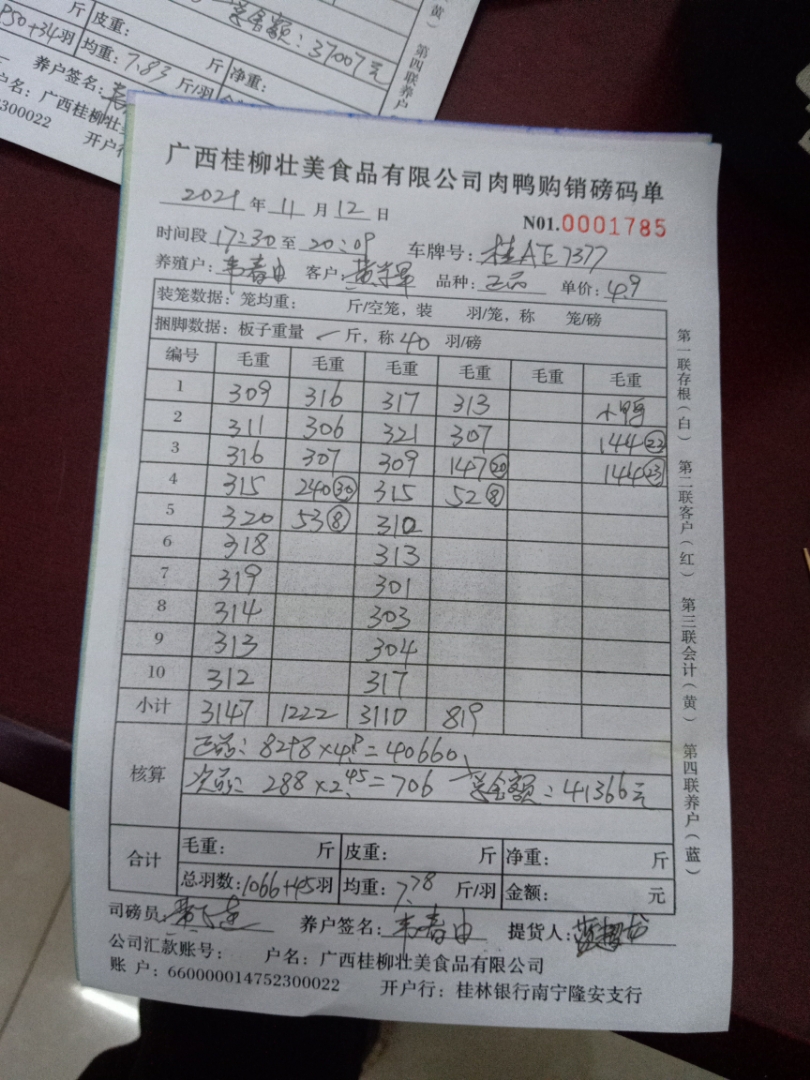 斤 皮重： 总金额：37007元
950+34羽 均重：7.83 斤/羽 净重：
养户签名：
户名：广西桂柳壮
2300022 开户行
黄） 第四联养户
广西桂柳壮美食品有限公司肉鸭购销磅码单
2021年11月12日 N01.0001785
时间段17:30至20:09 车牌号：桂AE7377
养殖户：韦春由 客户： 品种：正品 单价：4.9
装笼数据：笼均重： 斤/空笼，装 羽/笼，称 笼/磅
捆脚数据：板子重量 斤，称40 羽/磅
编号 毛重 毛重 毛重 毛重 毛重 毛重
1 309 316 317 313 小鸭
2 311 306 321 307 144㉒
3 316 307 309 147⑳ 144㉓
4 315 240㉚ 315 52⑧
5 320 53⑧ 310
6 318 313
7 319 301
8 314 303
9 313 304
10 312 317
小计 3147 1222 3110 819
核算 正品：8298×4.9=40660
次品：288×2.45=706 总金额：41366元
合计 毛重： 斤 皮重： 斤 净重： 斤
总羽数：1066+45羽 均重：7.78 斤/羽 金额： 元
司磅员： 养户签名：韦春由 提货人：
公司汇款账号： 户名：广西桂柳壮美食品有限公司
账 户：660000014752300022 开户行：桂林银行南宁隆安支行
第一联存根（白） 第二联客户（红） 第三联会计（黄） 第四联养户（蓝）